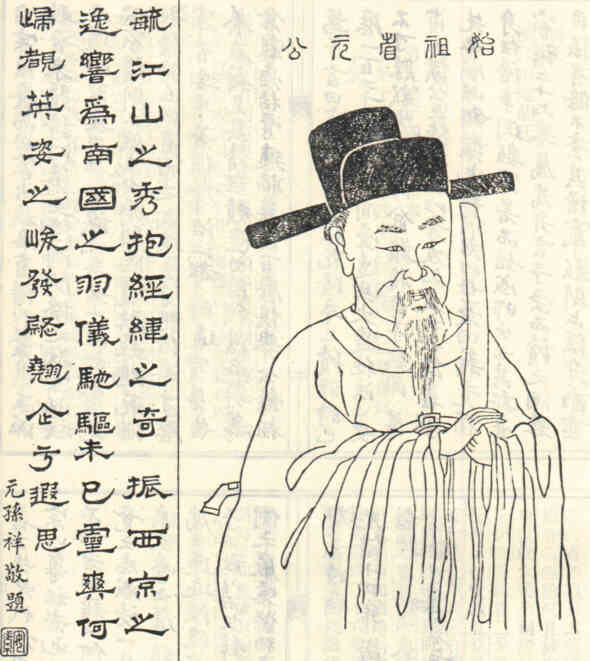 始祖省元公
毓江山之秀抱經緯之奇振西京之
逸響爲南國之羽儀馳驅未已靈爽何
歸覩英姿之峻發翹企兮遐思
元孫祥敬題